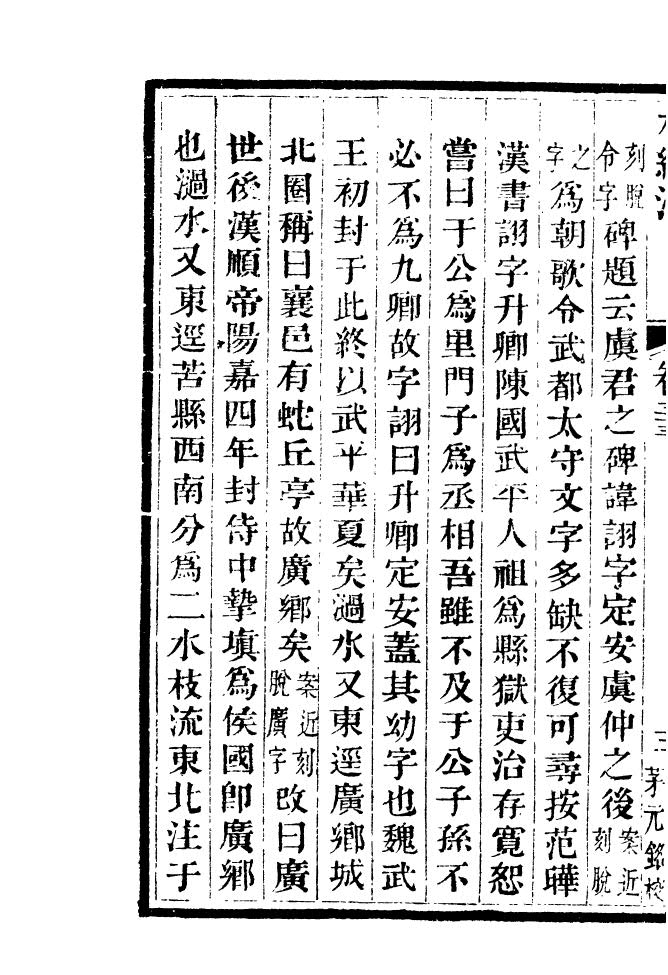 茅元銘校
刻脫令字碑題云虞君之碑諱詡字定安虞仲之後案近刻脫
之字爲朝歌令武都太守文字多缺不復可尋按范曄
漢書詡字升卿陳國武平人祖爲縣獄吏治存寬恕
嘗曰于公爲里門子爲丞相吾雖不及于公子孫不
必不爲九卿故字詡曰升卿定安蓋其幼字也魏武
王初封于此終以武平華夏矣濄水又東逕廣鄉城
北圈稱曰襄邑有蛇丘亭故廣鄉矣案近刻脫廣字改曰廣
世後漢順帝陽嘉四年封侍中摯塡爲侯國卽廣鄉
也濄水又東逕苦縣西南分爲二水枝流東北注于